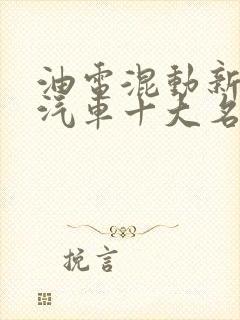 油電混動新
汽車十大名
挽言